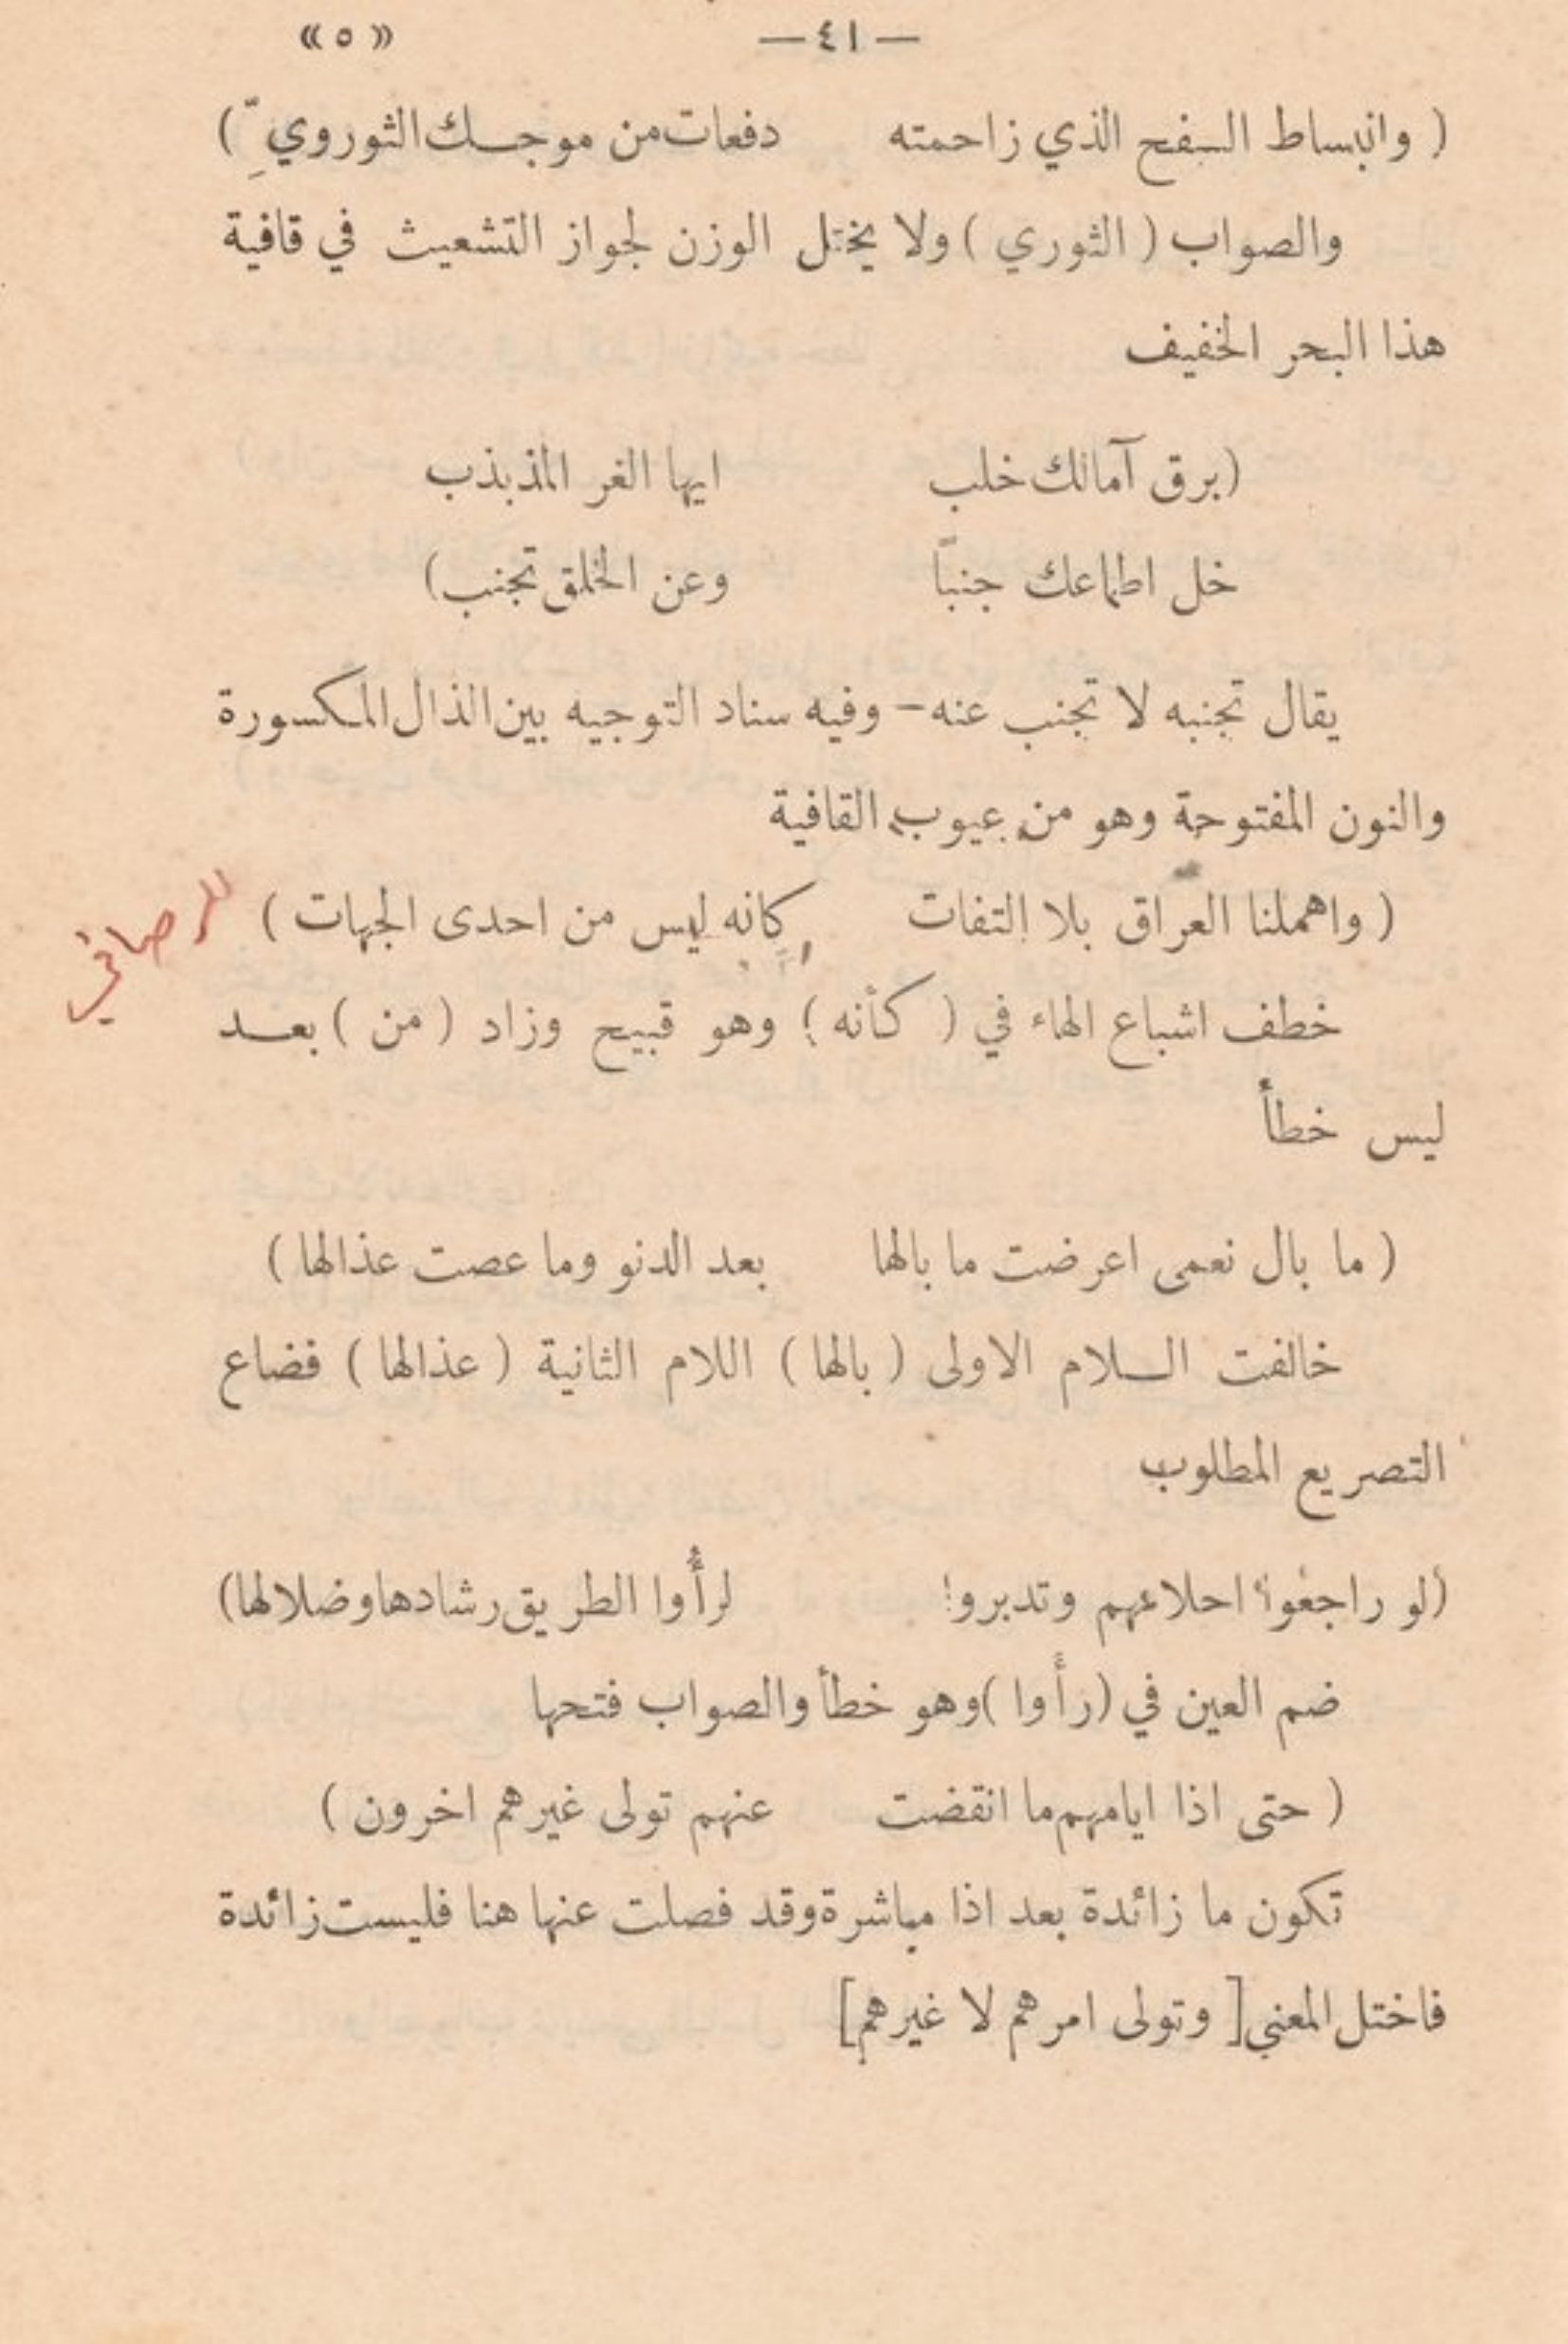 — ٤١ — « ٥ »
( وانبساط السفح الذي زاحمته دفعات من موجك الثورويِّ )
والصواب ( الثوري ) ولا يختل الوزن لجواز التشعيث في قافية
هذا البحر الخفيف
(برق آمالك خلب ايها الغر المذبذب
خل اطماعك جنبّا وعن الخلق تجنب)
يقال تجنبه لا تجنب عنه — وفيه سناد التوجيه بين الذال المكسورة
والنون المفتوحة وهو من عيوب القافية
( واهملنا العراق بلا التفات كانه ليس من احدى الجهات ) للرصافي
خطف اشباع الهاء في ( كأنه ) وهو قبيح وزاد ( من ) بعد
ليس خطأ
( ما بال نعمى اعرضت ما بالها بعد الدنو وما عصت عذالها )
خالفت اللام الاولى ( بالها ) اللام الثانية ( عذالها ) فضاع
التصريع المطلوب
(لو راجعوا احلامهم وتدبروا لرأُوا الطريق رشادها وضلالها)
ضم العين في (رأُوا) وهو خطأ والصواب فتحها
( حتى اذا ايامهم ما انقضت عنهم تولى غيرهم اخرون )
تكون ما زائدة بعد اذا مباشرة وقد فصلت عنها هنا فليست زائدة
فاختل المعنى [ وتولى امرهم لا غيرهم]